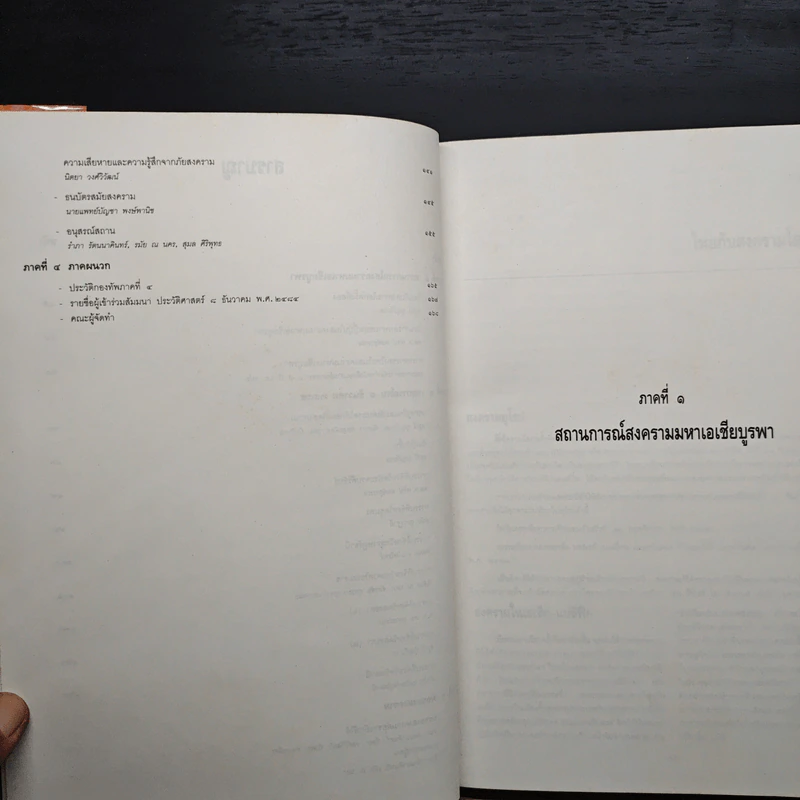 ความเสียหายและความรู้สึกจากภัยสงคราม ๑๔๑
นิตยา วงศ์วิวัฒน์
- ธนบัตรสมัยสงคราม ๑๔๕
นายแพทย์บัญชา พงษ์พานิช
- อนุสรณ์สถาน ๑๕๕
รำภา รัตนนาคินทร์, รมัย ณ นคร, สุมล ศิริพุทธ
ภาคที่ ๔ ภาคผนวก
- ประวัติกองทัพภาคที่ ๔ ๑๖๕
- รายชื่อผู้เข้าร่วมสัมมนา ประวัติศาสตร์ ๘ ธันวาคม พ.ศ.๒๔๘๔
- คณะผู้จัดทำ
ภาคที่ ๑
สถานการณ์สงครามมหาเอเชียบูรพา